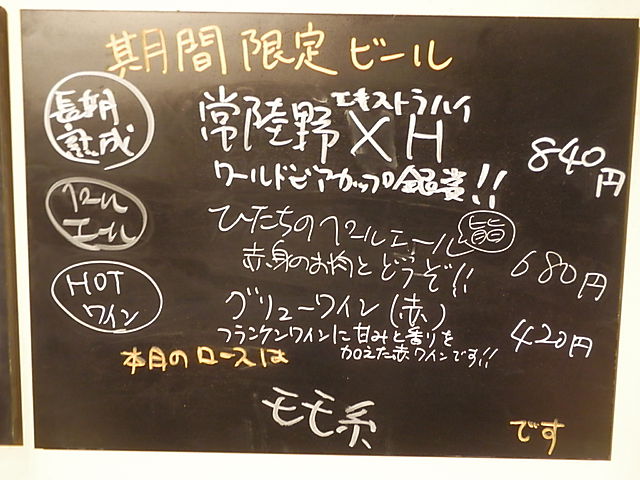 期間限定ビール
長期
熟成
エキストラハイ
常陸野XH
840円
ワールドビアカップ金賞!!
ペール
エール
ひたちのペールエール
旨
赤身のお肉とどうぞ!!
680円
HOT
ワイン
グリューワイン(赤)
フランケンワインに甘みと香りを
加えた赤ワインです!!
420円
本日のロースは
モモ系
です